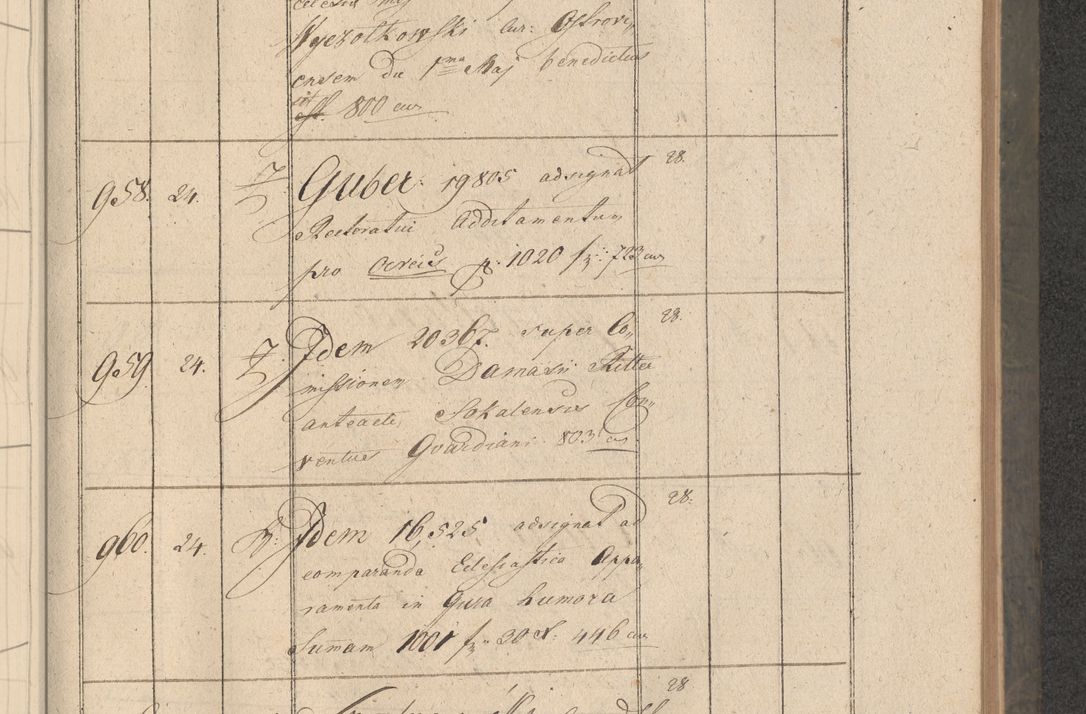 Wyezołkowski cur: Ostrovi„
ensem de 1ma Maj benedictus
est 800 eur
958. 24. Guber: 19805 adsignat 28.
Rectoratui Additamentum
pro Ocreis p: 1020 f 723 eur
959. 24. Idem 20367. super Co„ 28.
missionem Damasii Ritter
anteacti Sokalensis Con„
ventus Guardiani 803 eur
960. 24. Idem 16,525 adsignat ad 28.
comparanda Eclesiastica Appa„
ramenta in Gura humora
Sumam 1001 f 30 x: 446 eur
28